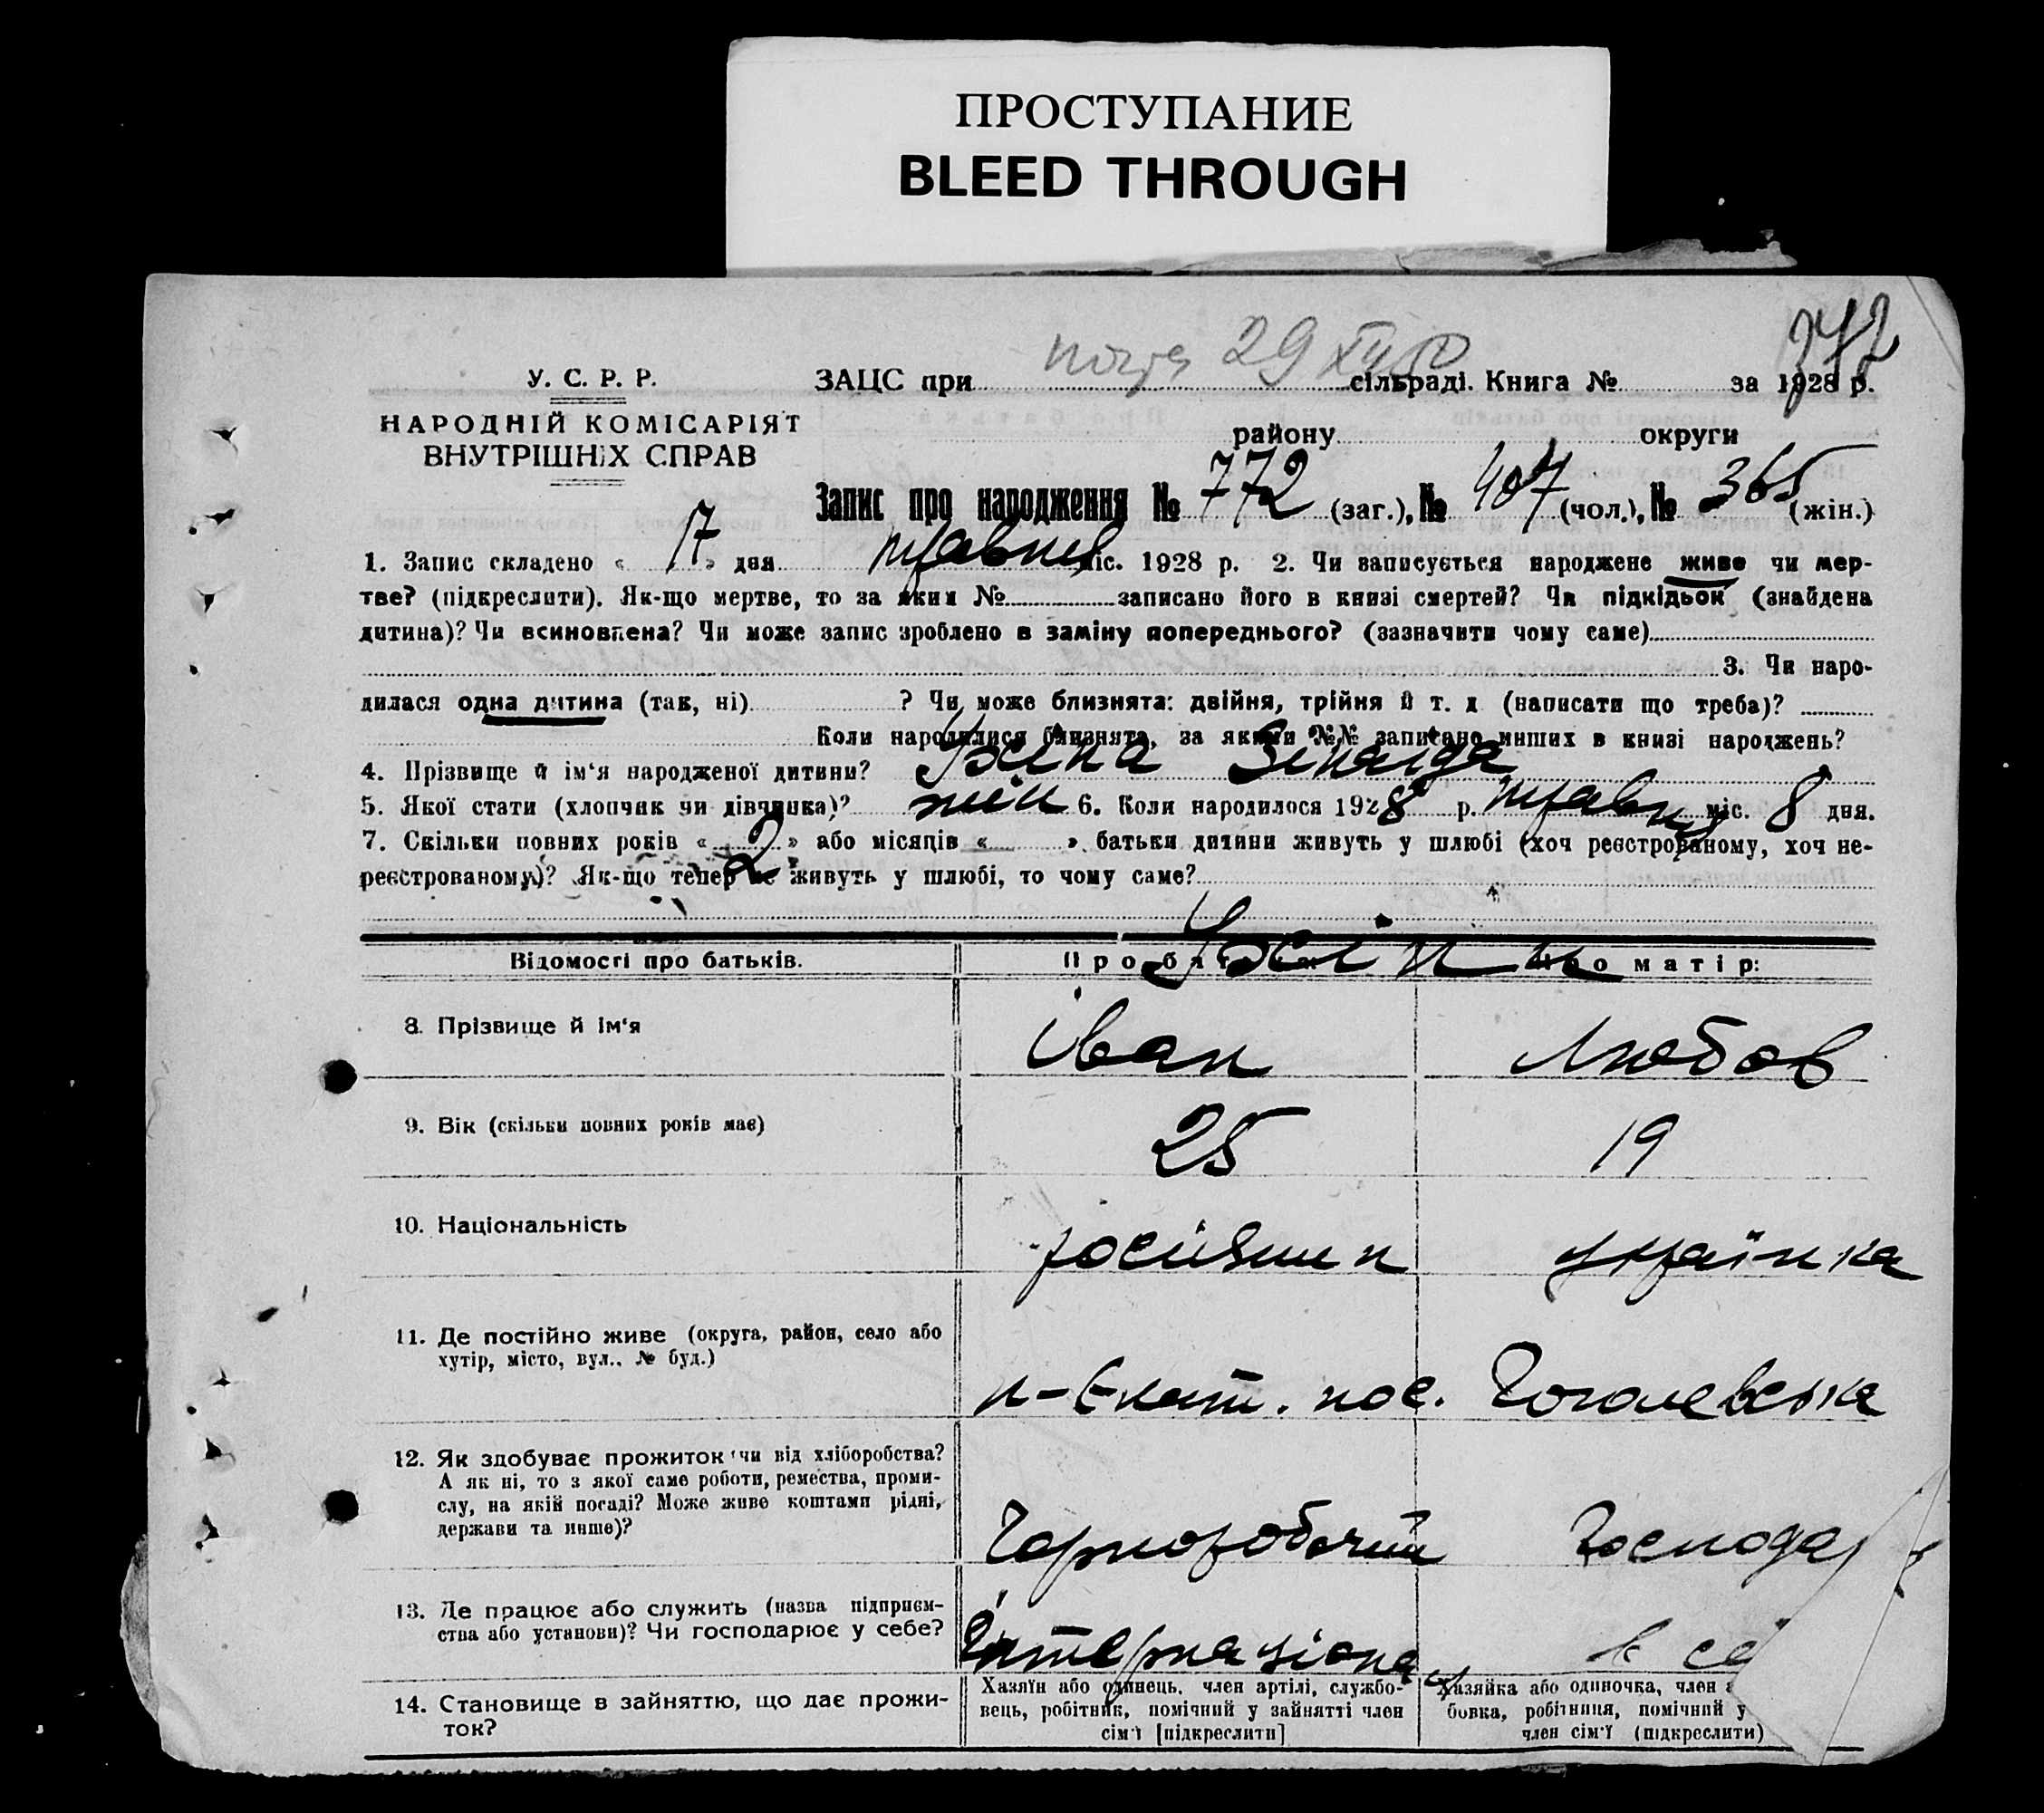 ПРОСТУПАНИЕ
BLEED THROUGH
372
29 XII 50
У. С. Р. Р.
ЗАЦС при сільраді. Книга № за 1928 р.
НАРОДНІЙ КОМІСАРІЯТ
ВНУТРІШНІХ СПРАВ
району округи
Запис про народження № 772 (заг.), № 407 (чол.), № 365 (жін.)
1. Запис складено « 17 » дня травня міс. 1928 р. 2. Чи записується народжене живе чи мер-
тве? (підкреслити). Як-що мертве, то за яким № записано його в книзі смертей? Чи підкідьок (знайдена
дитина)? Чи всиновлена? Чи може запис зроблено в заміну попереднього? (зазначити чому саме)
3. Чи наро-
дилася одна дитина (так, ні) ? Чи може близнята: двійня, трійня й т. д (написати що треба)?
Коли народилися близнята, за якими №№ записано инших в книзі народжень?
4. Прізвище й ім‘я народженої дитини? Зінаїда
5. Якої стати (хлопчик чи дівчинка)? жін 6. Коли народилося 1928 р. травня міс. 8 дня.
7. Скільки повних років « 2 » або місяців « » батьки дитини живуть у шлюбі (хоч реєстрованому, хоч не-
реєстрованому)? Як-що тепер не живуть у шлюбі, то чому саме?
Відомості про батьків. Про батька: Про матір:
8. Прізвище й ім‘я Іван Любов
9. Вік (скільки повних років має) 25 19
10. Національність росіянин українка
11. Де постійно живе (округа, район, село або
хутір, місто, вул.. № буд.) н-Екат. пос. Гоголевська
12. Як здобуває прожиток чи від хліборобства?
А як ні, то з якої саме роботи, ремества, проми-
слу, на якій посаді? Може живе коштами рідні,
держави та инше)? Чорноробочий Господар
13. Де працює або служить (назва підприєм-
ства або установи)? Чи господарює у себе? Інтернаціонал в се
14. Становище в зайняттю, що дає прожи-
ток?
Хазяїн або одинець, член артілі, службо-
вець, робітник, помічний у зайнятті член
сім‘ї [підкреслити]
Хазяйка або одиночка, член
бовка, робітниця, помічний у
член сім‘ї (підкреслити)